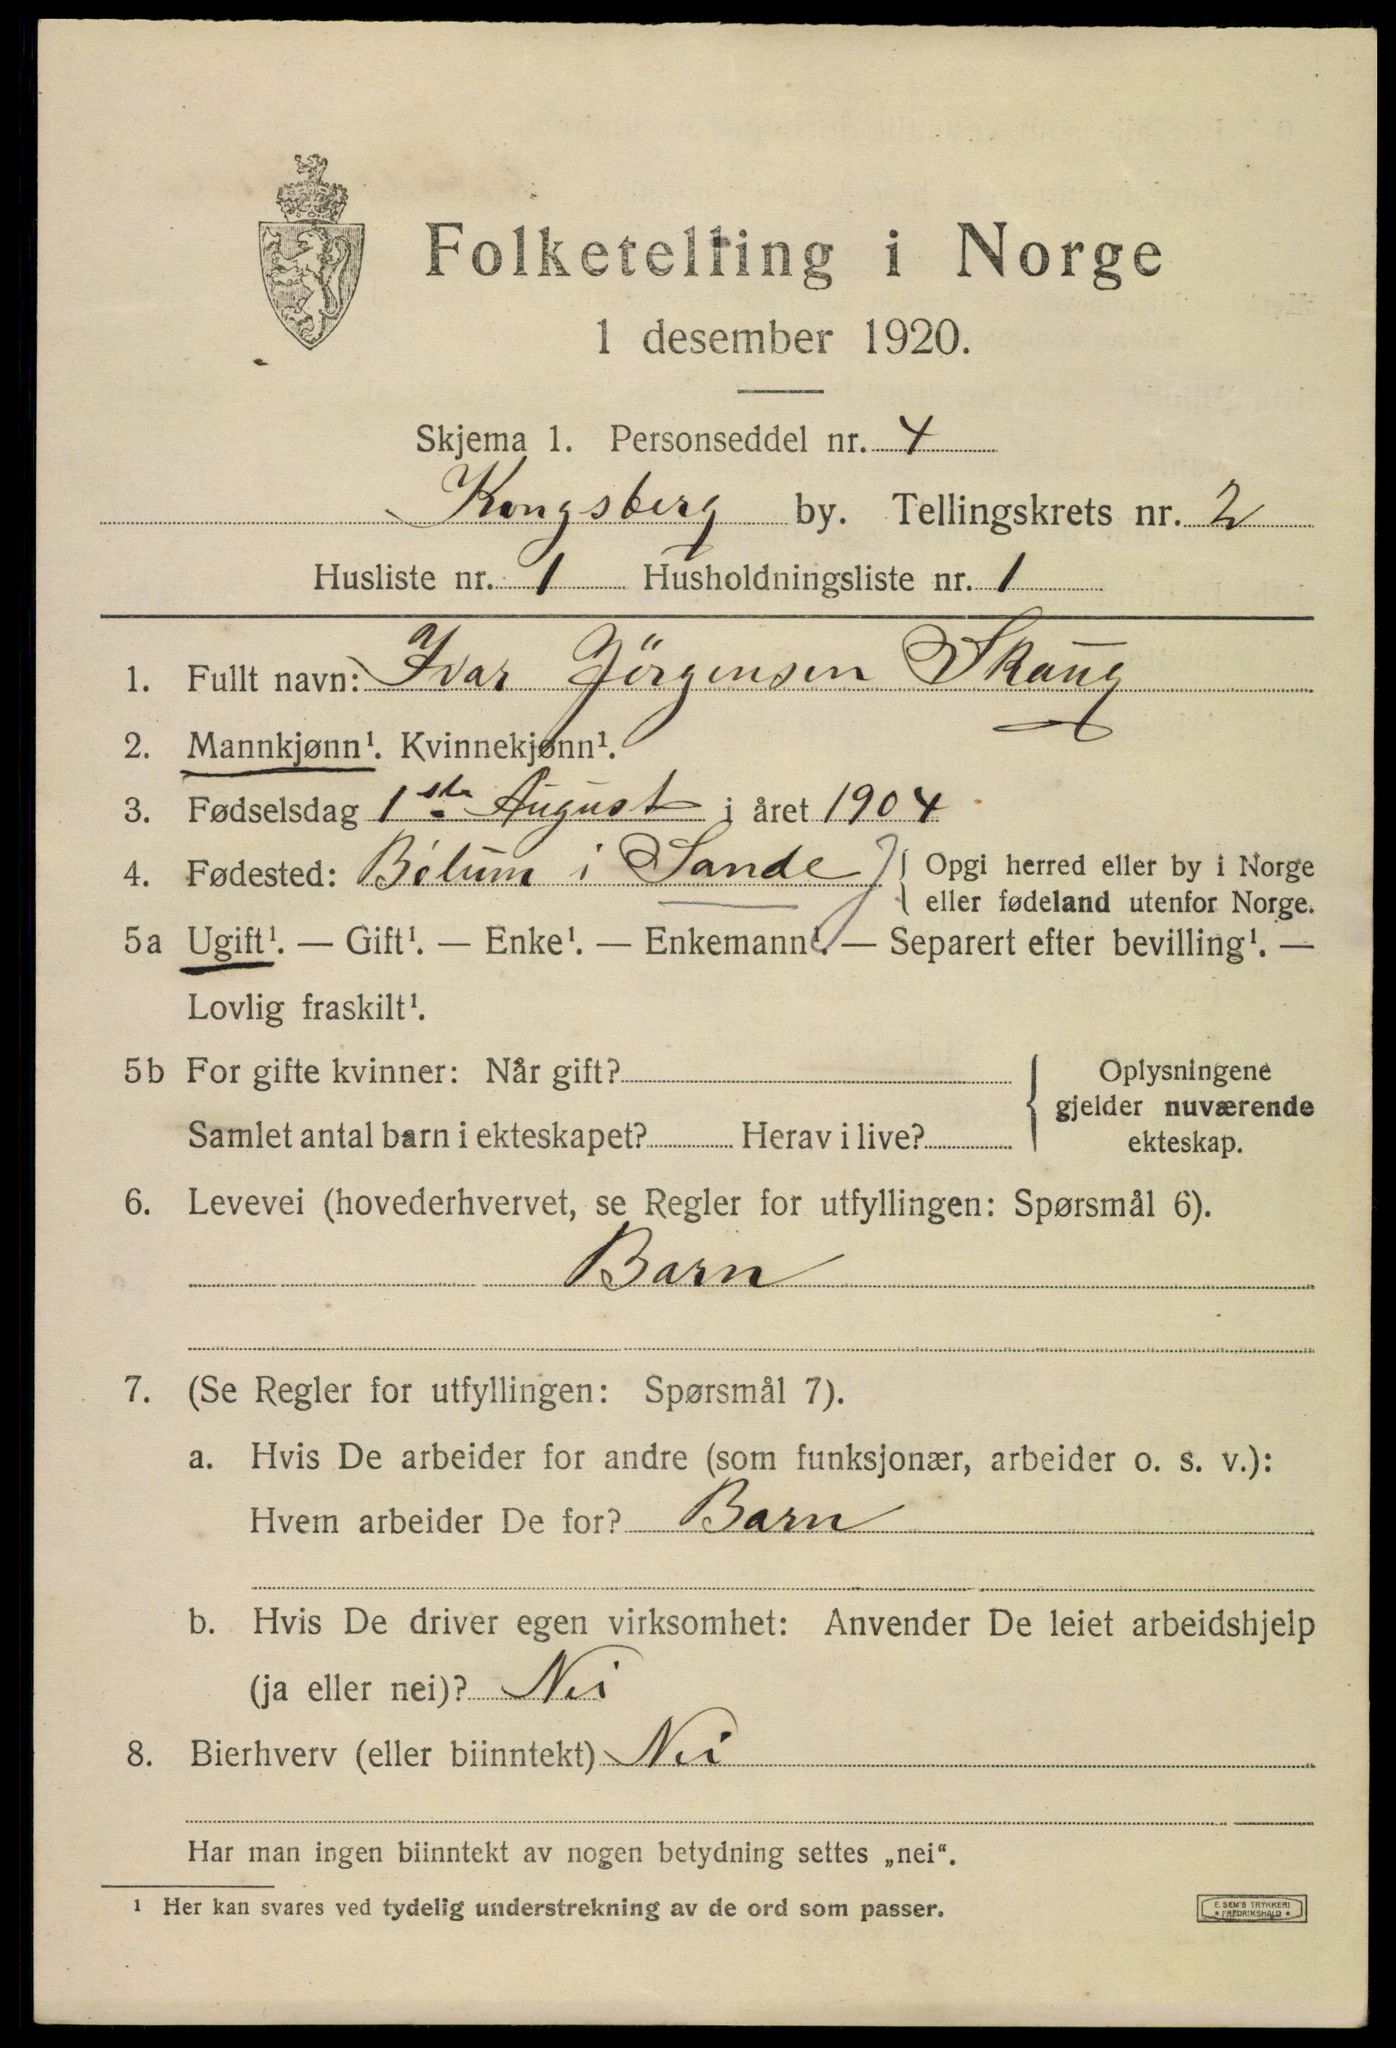 Folketelling i Norge
1 desember 1920.
Skjema 1. Personseddel nr. 4
Kongsberg by. Tellingskrets nr. 2
Husliste nr. 1 Husholdningsliste nr. 1
1. Fullt navn: Ivar Jörgensen Skaug
2. Mannkjønn¹. Kvinnekjønn¹.
3. Fødselsdag 1ste August i året 1904
4. Fødested: i Sande J { Opgi herred eller by i Norge
eller fødeland utenfor Norge.
5a Ugift¹. — Gift¹. — Enke¹. — Enkemann¹. — Separert efter bevilling¹. —
Lovlig fraskilt¹.
5b For gifte kvinner: Når gift? { Oplysningene
gjelder nuværende
Samlet antal barn i ekteskapet? Herav i live? ekteskap.
6. Levevei (hovederhvervet, se Regler for utfyllingen: Spørsmål 6).
Barn
7. (Se Regler for utfyllingen: Spørsmål 7).
a. Hvis De arbeider for andre (som funksjonær, arbeider o. s. v.):
Hvem arbeider De for? Barn
b. Hvis De driver egen virksomhet: Anvender De leiet arbeidshjelp
(ja eller nei)? Nei
8. Bierhverv (eller biinntekt) Nei
Har man ingen biinntekt av nogen betydning settes „nei“.
¹ Her kan svares ved tydelig understrekning av de ord som passer.
E. SEM'S TRYKKERI
* FREDRIKSHALD *